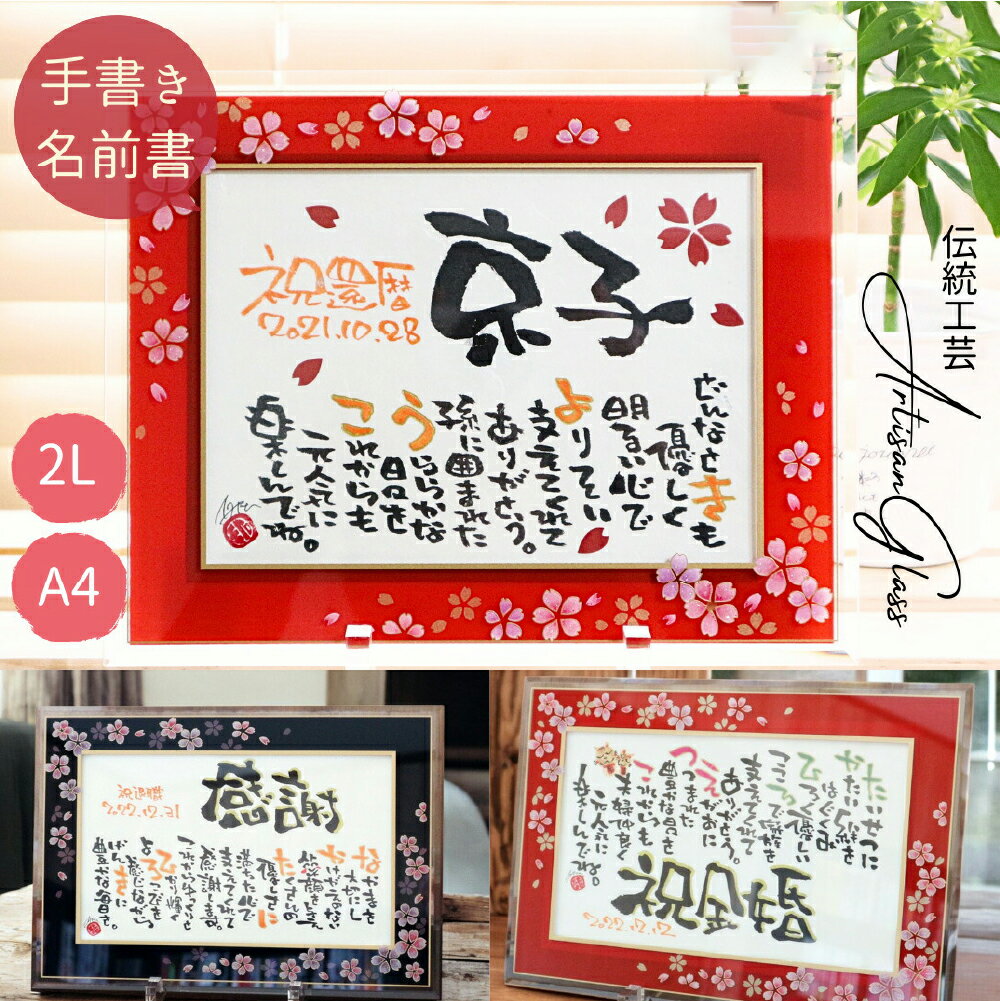 手書き
名前書
2L
A4
伝統工芸
Artisan Glass
京子
祝還暦
2021.10.28
どんなときも
優しく
明るい心で
よりそい
支えてくれて
ありがとう。
孫に囲まれた
うららかな
日々を
これからも
元気に
楽しんでね。
感謝
祝退職
2022.12.31
大切にし
優しさに
満ちた心で
支えてくれて
感謝します。
ひかり輝く
よろこびを
感じながら
げんきに
豊かな毎日を。
たいせつに
かたい絆を
はぐくみ
ひろく優しい
こころで家族を
支えてくれて
ありがとう。
えがおに
つつまれた
豊かな日々を
これからも
夫婦仲良く
元気に
楽しんでね。
祝金婚
2022.12.12